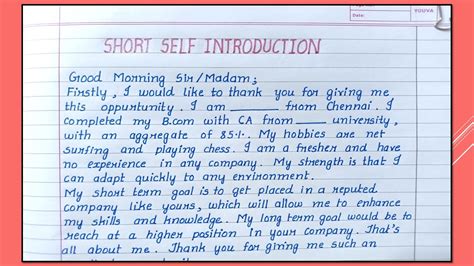 Date
YOUVA
SHORT SELF INTRODUCTION
Good Morning Sir/Madam;
Firstly, I would like to thank you for giving me
this oppurtunity. I am ______ from Chennai. I
completed my B.com with CA from ____ university,
with an aggregate of 85%. My hobbies are net
surfing and playing chess. I am a fresher and have
no experience in any company. My strength is that I
can adapt quickly to any environment.
My short term goal is to get placed in a reputed
company like yours, which will allow me to enhance
my skills and knowledge. My long term goal would be to
reach at a higher position in your company. That's
all about me. Thank you for giving me such an